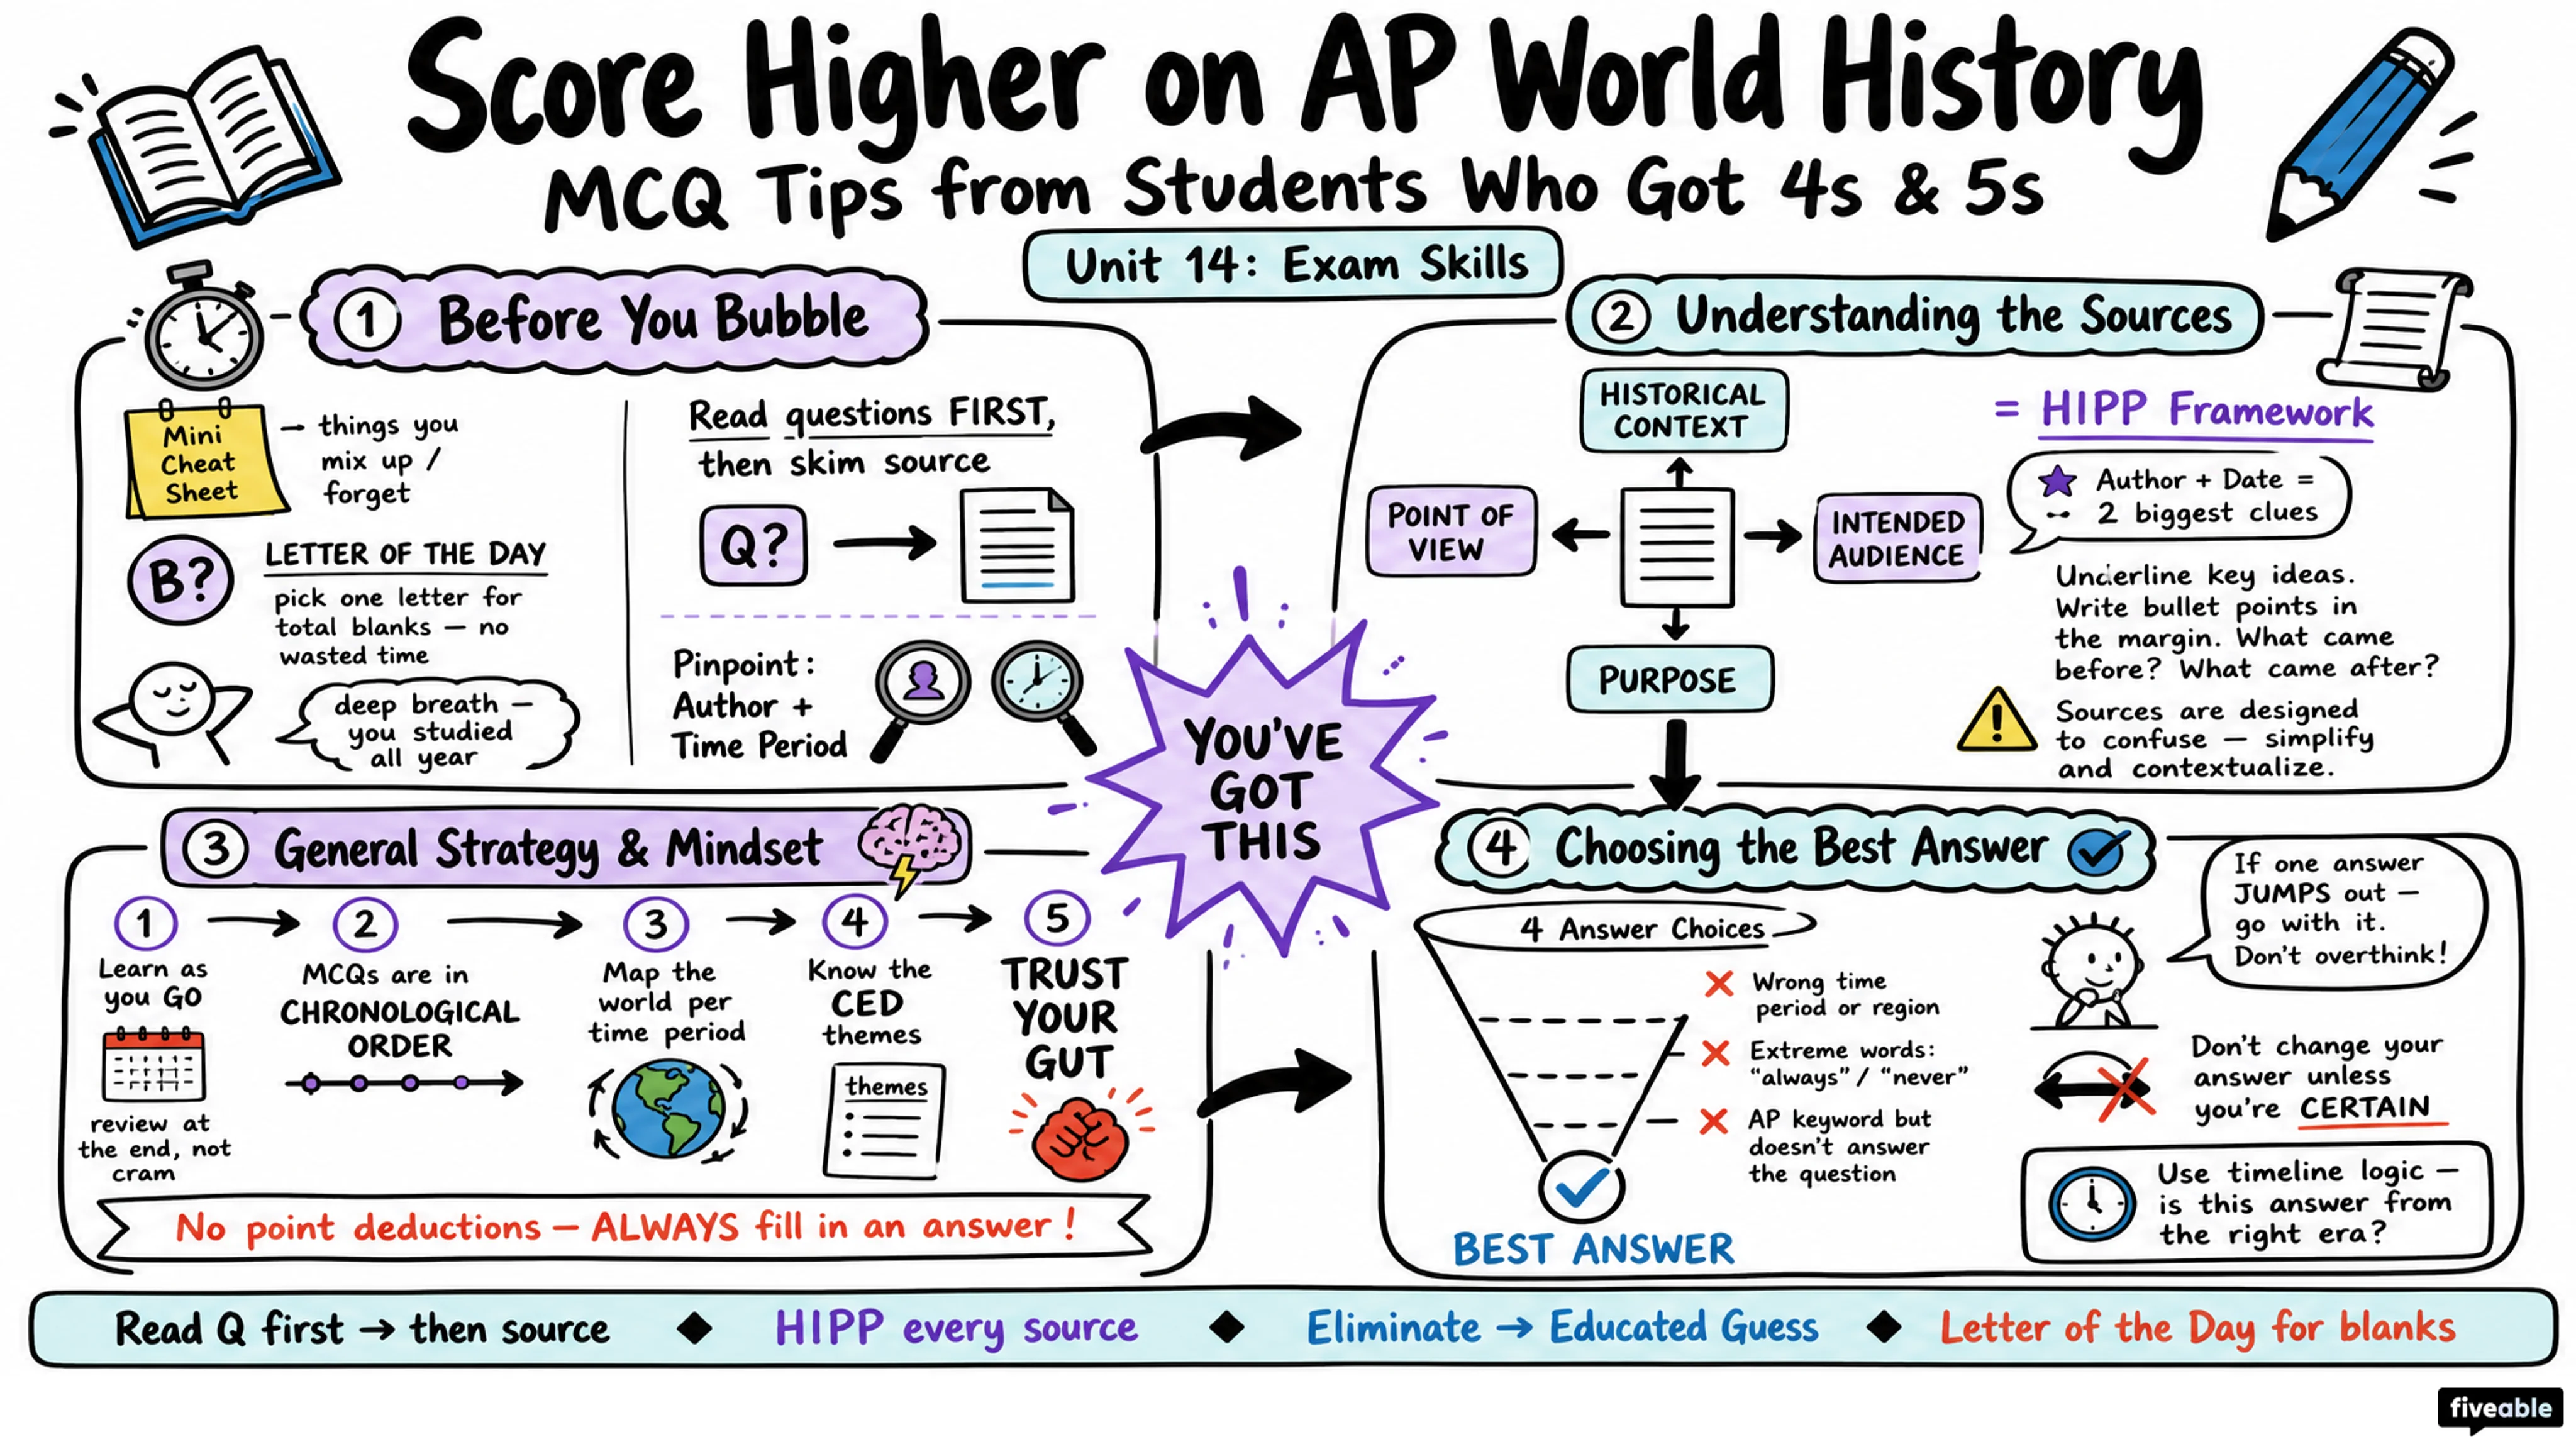 Score Higher on AP World History
MCQ Tips from Students Who Got 4s & 5s
Unit 14: Exam Skills
1 Before You Bubble
Mini
Cheat
Sheet
→ things you
mix up /
forget
B?
LETTER OF THE DAY
pick one letter for
total blanks — no
wasted time
deep breath —
you studied
all year
Read questions FIRST,
then skim source
Q?
Pinpoint:
Author +
Time Period
2 Understanding the Sources
HISTORICAL
CONTEXT
POINT OF
VIEW
INTENDED
AUDIENCE
PURPOSE
= HIPP Framework
Author + Date =
2 biggest clues
Underline key ideas.
Write bullet points in
the margin. What came
before? What came after?
Sources are designed
to confuse — simplify
and contextualize.
YOU'VE
GOT
THIS
3 General Strategy & Mindset
1
Learn as
you GO
review at
the end, not
cram
2
MCQs are in
CHRONOLOGICAL
ORDER
3
Map the
world per
time period
4
Know the
CED
themes
themes
5
TRUST
YOUR
GUT
No point deductions — ALWAYS fill in an answer!
4 Choosing the Best Answer
4 Answer Choices
Wrong time
period or region
Extreme words:
"always" / "never"
AP keyword but
doesn't answer
the question
BEST ANSWER
If one answer
JUMPS out —
go with it.
Don't overthink!
Don't change your
answer unless
you're CERTAIN
Use timeline logic —
is this answer from
the right era?
Read Q first → then source ◆ HIPP every source ◆ Eliminate → Educated Guess ◆ Letter of the Day for blanks
fiveable